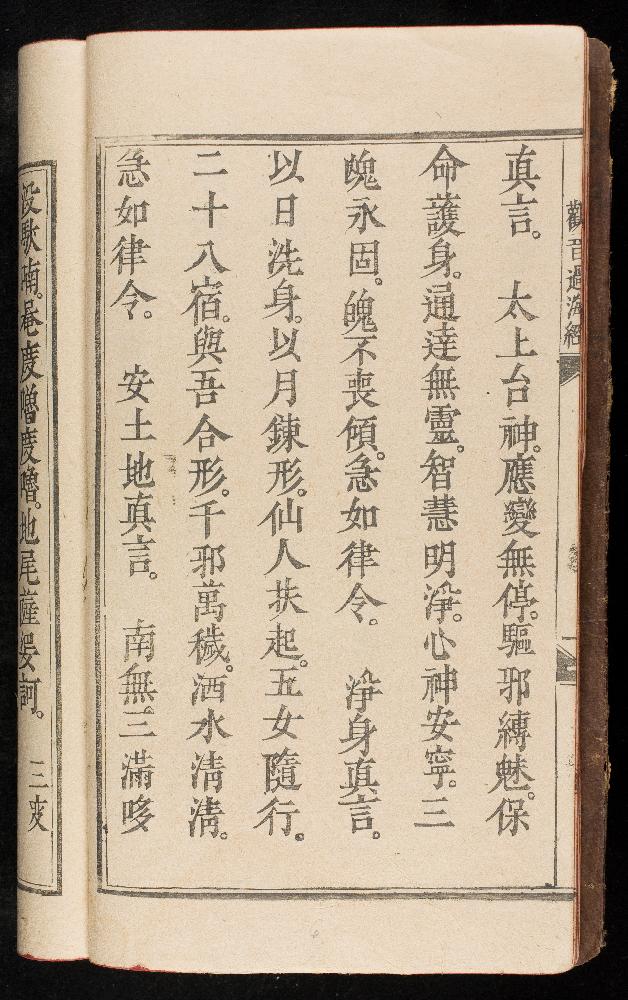 觀音過海經
真言。 太上台神。應變無停。驅邪縛魅。保
命護身。通達無靈。智慧明淨。心神安寧。三
魄永固。魄不喪傾。急如律令。 淨身真言。
以日洗身。以月鍊形。仙人扶起。五女隨行。
二十八宿。與吾合形。千邪萬穢。洒水清清。
急如律令。 安土地真言。 南無三滿哆
沒馱喃。唵度嚕度嚕。地尾薩婆訶。 三変